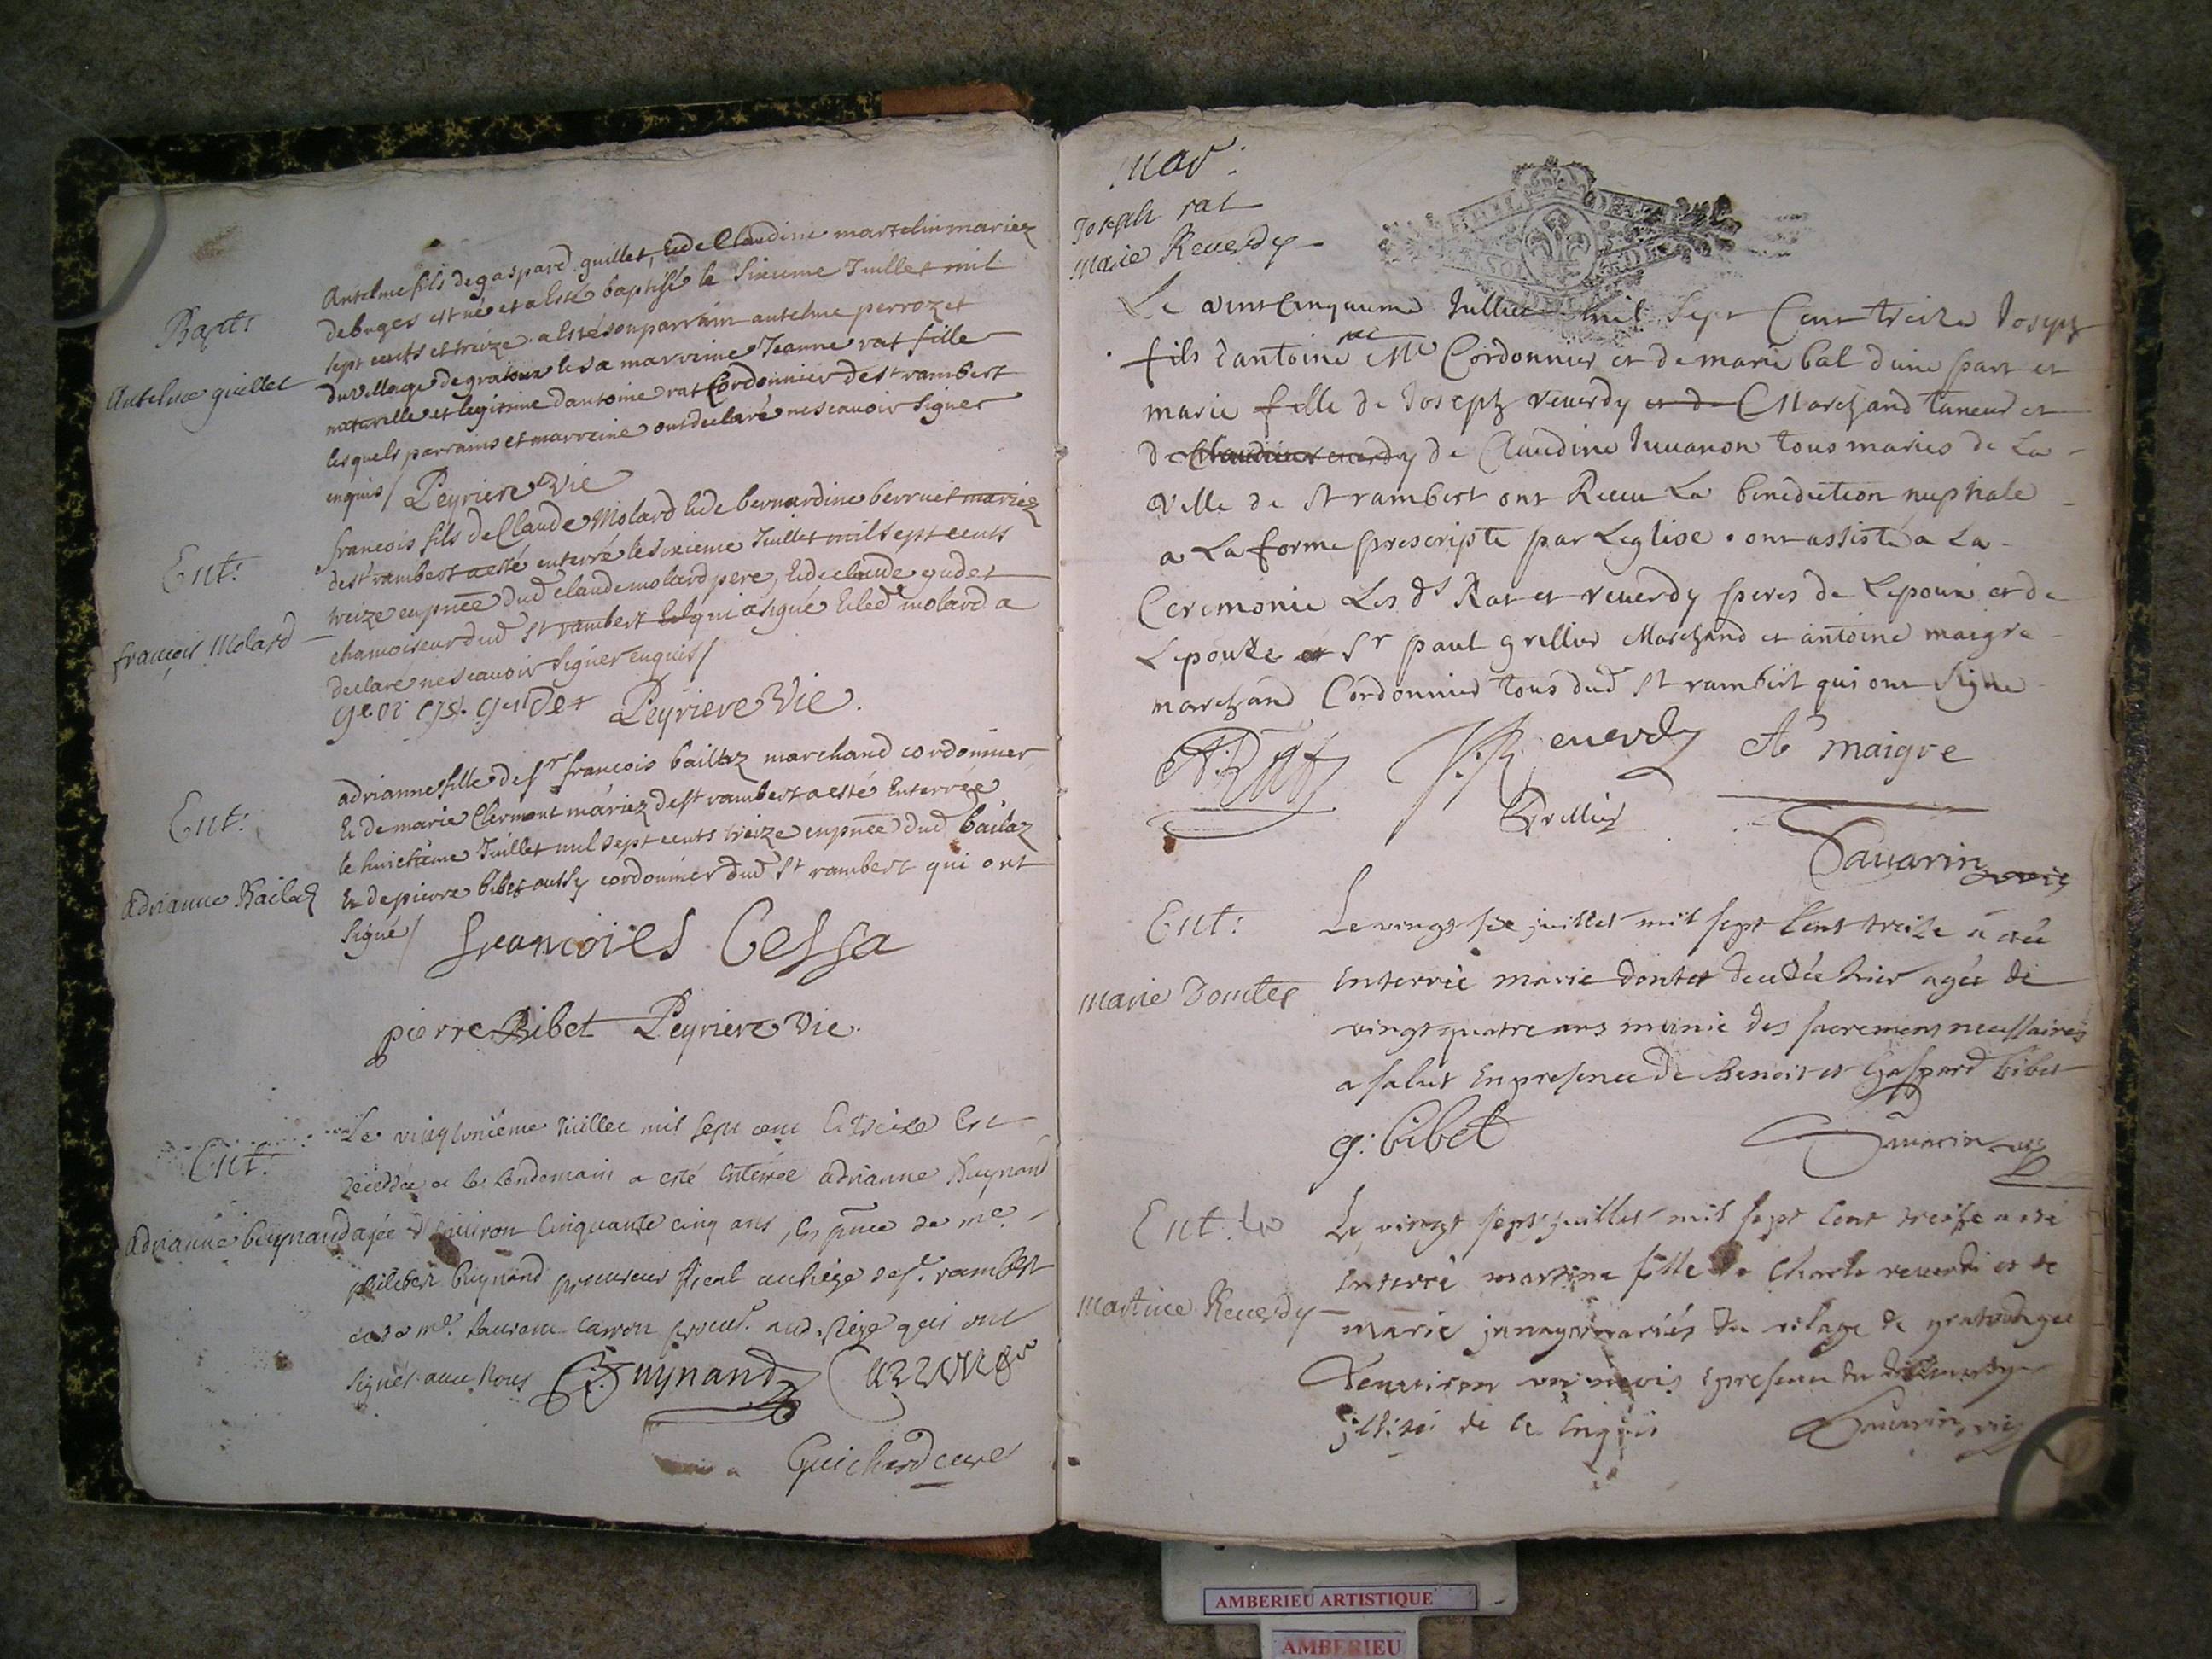 Bapts
Anselme guillet
Anselme fils de gaspard guillet, et de Claudine martelin mariez
de buges est né et a esté baptisé le sixieme Juillet mil
sept cents et treize a esté son parrain antelme perroz et
du village de gratoux et sa marreine Jeanne rat fille
naturelle et legitime dantoine rat Cordonnier de st rambert
lesquels parrains et marreine ont declaré ne scavoir signer
enquis / Peyriere Vic
Ent:
françois Molard
françois fils de Claude Molard et de bernardine berruet mariez
de st rambert a esté enterré le sixieme Juillet mil sept cents
treize en pnce dud claude molard pere, et de claude gudet
chamoiseur dud st rambert lequel a signé et led molard a
declaré ne scavoir signer enquis /
gudet Peyriere Vic.
Ent:
adrianne Bailaz
adrianne fille de sr francois bailaz marchand cordonnier
et de marie Clermont mariez de st rambert a esté Enterrée
le huictieme Juillet mil sept cents treize en pnce dud bailaz
et de pierre bibet aussy cordonnier dud st rambert qui ont
signé /
francoies Cessa
pierre Bibet Peyriere Vic.
Ent:
adrianne buynand
Le vingt unième Juillet mil sept cent et treize Est
décédée et le lendemain a esté Enterrée adrianne Buynand
agée d'environ Cinquante cinq ans, En pnce de me.
philibert buynand procureur fiscal au siege de st. rambert
et de me. Laurent Carron procur. aud. siege qui ont
signés avec nous Buynand Carron
Guichard curé
Mar:
Joseph rat
Marie Reverdy
Le vint Cinquieme Jullier mil sept Cent treize Joseph
rat
fils d'antoine Me Cordonnier et de marie bal d'une part et
marie fille de Joseph reverdy et de Marchand taneur et
de Claudine reverdy de Claudine Juvanon tous maries de La
Ville de st rambert ont Receu La benediction nuptiale
a La forme prescripte par Leglise . ont assisté a La
Ceremonie Les ds Rat et reverdy peres de Lepoux et de
Lepouse et Sr paul grillier Marchand et antoine maigre
marchand Cordonnier tous dud st rambert qui ont signe
A. Rat J. Reverdy At maigre
Grillier
Savarin vic
Ent:
Marie Doncter
Le vingt six juillet mil sept Cent treize a été
Enterrée marie dontet decedée hier agée de
vingt quatre ans munie des sacremens necessaires
a salut En presence de Benoit et Gaspard bibet
g: bibet Savarin vic
Ent.
Martine Reverdy
Le vingt sept juillet mil sept Cent treize a eté
Enterré martine fille de Charle reverdi et de
marie mariés du vilage de gratoux agée
d'environ un mois En presence du dit Reverdy
illitéré de ce Enquis Savarin vic
AMBERIEU ARTISTIQUE
AMBERIEU